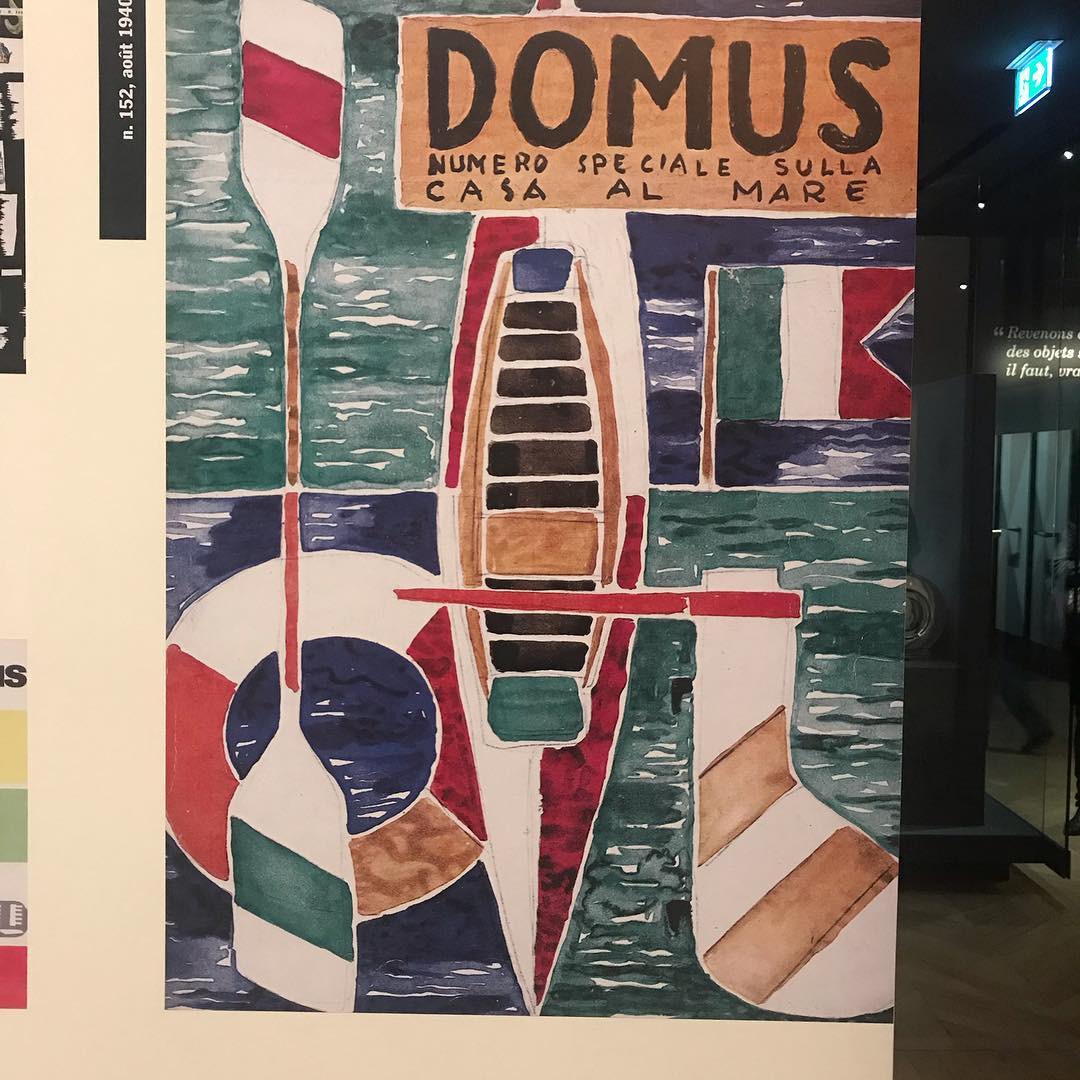 n. 152, août 1940
DOMUS
NUMERO SPECIALE SULLA
CASA AL MARE
“ Revenons
des objets
il faut,